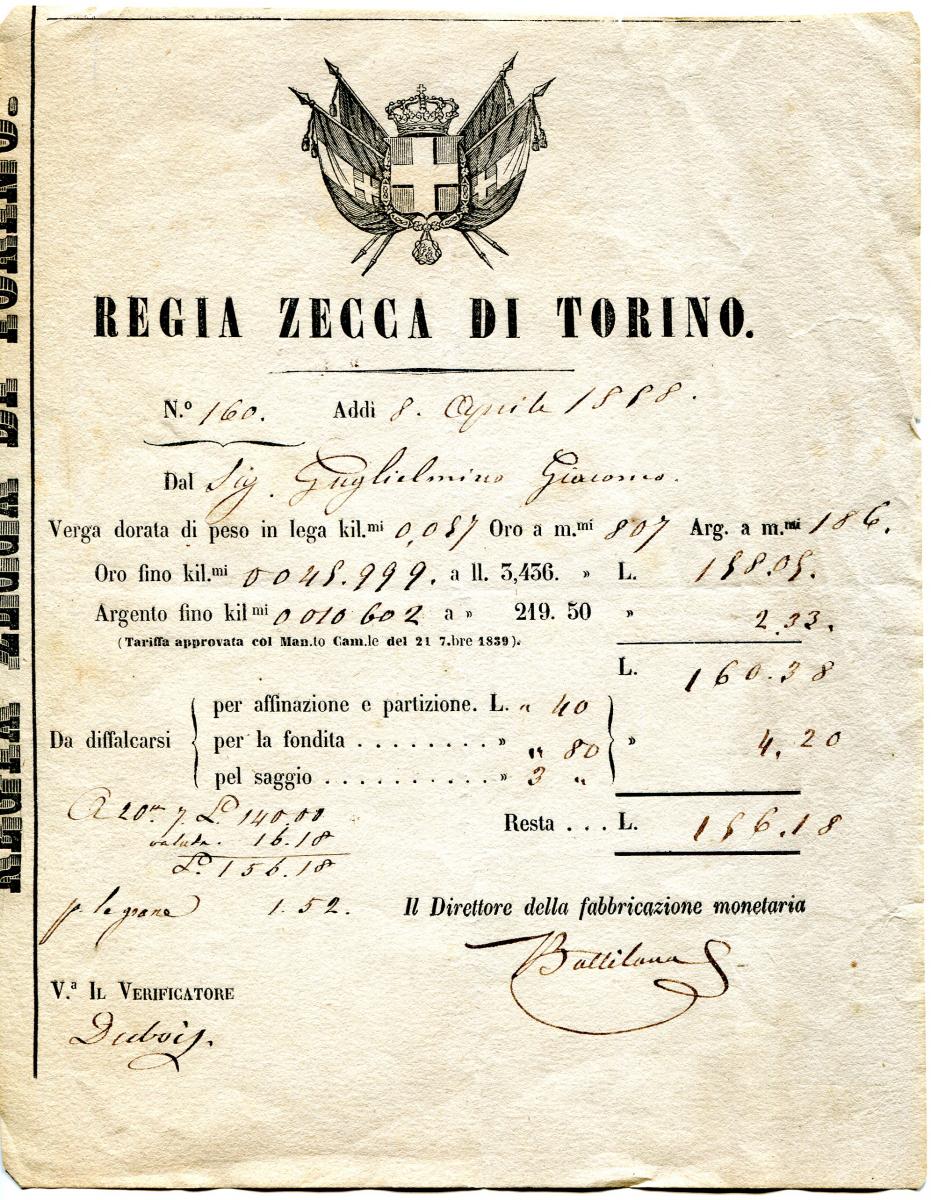 REGIA ZECCA DI TORINO.
REGIA ZECCA DI TORINO.
N.º 160. Addì 8. Aprile 1858.
Dal Sig. Guglielmino Giacomo.
Verga dorata di peso in lega kil.mi 0,057 Oro a m.mi 807 Arg. a m.mi 186.
Oro fino kil.mi 0045.999. a ll. 3,436. » L. 158.05.
Argento fino kil mi 0010602 a » 219. 50 » 2.33.
(Tariffa approvata col Man.to Cam.le del 21 7.bre 1839).
L. 160.38
per affinazione e partizione. L. " 40
Da diffalcarsi per la fondita . . . . . . . . » " 80 » 4.20
pel saggio . . . . . . . . . . » 3 "
A 20 7 L. 140.00
Resta . . . L. 156.18
valuta. 16.18
L. 156.18
p le grane 1.52.
Il Direttore della fabbricazione monetaria
Battilana
V.ª IL VERIFICATORE
Dubois.